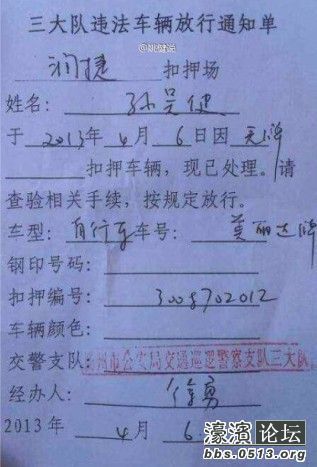 三大队违法车辆放行通知单
润捷 扣押场
姓名: 孙吴健
于 2013 年 4 月 6 日因 无牌
扣押车辆,现已处理。请
查验相关手续,按规定放行。
车型: 自行车 车号: 莫丽达牌
钢印号码:
扣押编号: 3008702012
车辆颜色:
交警支队 州市公安局交通巡逻警察支队三大队
经办人: 徐勇
2013 年 4 月 6
濠滨论坛
bbs.0513.org